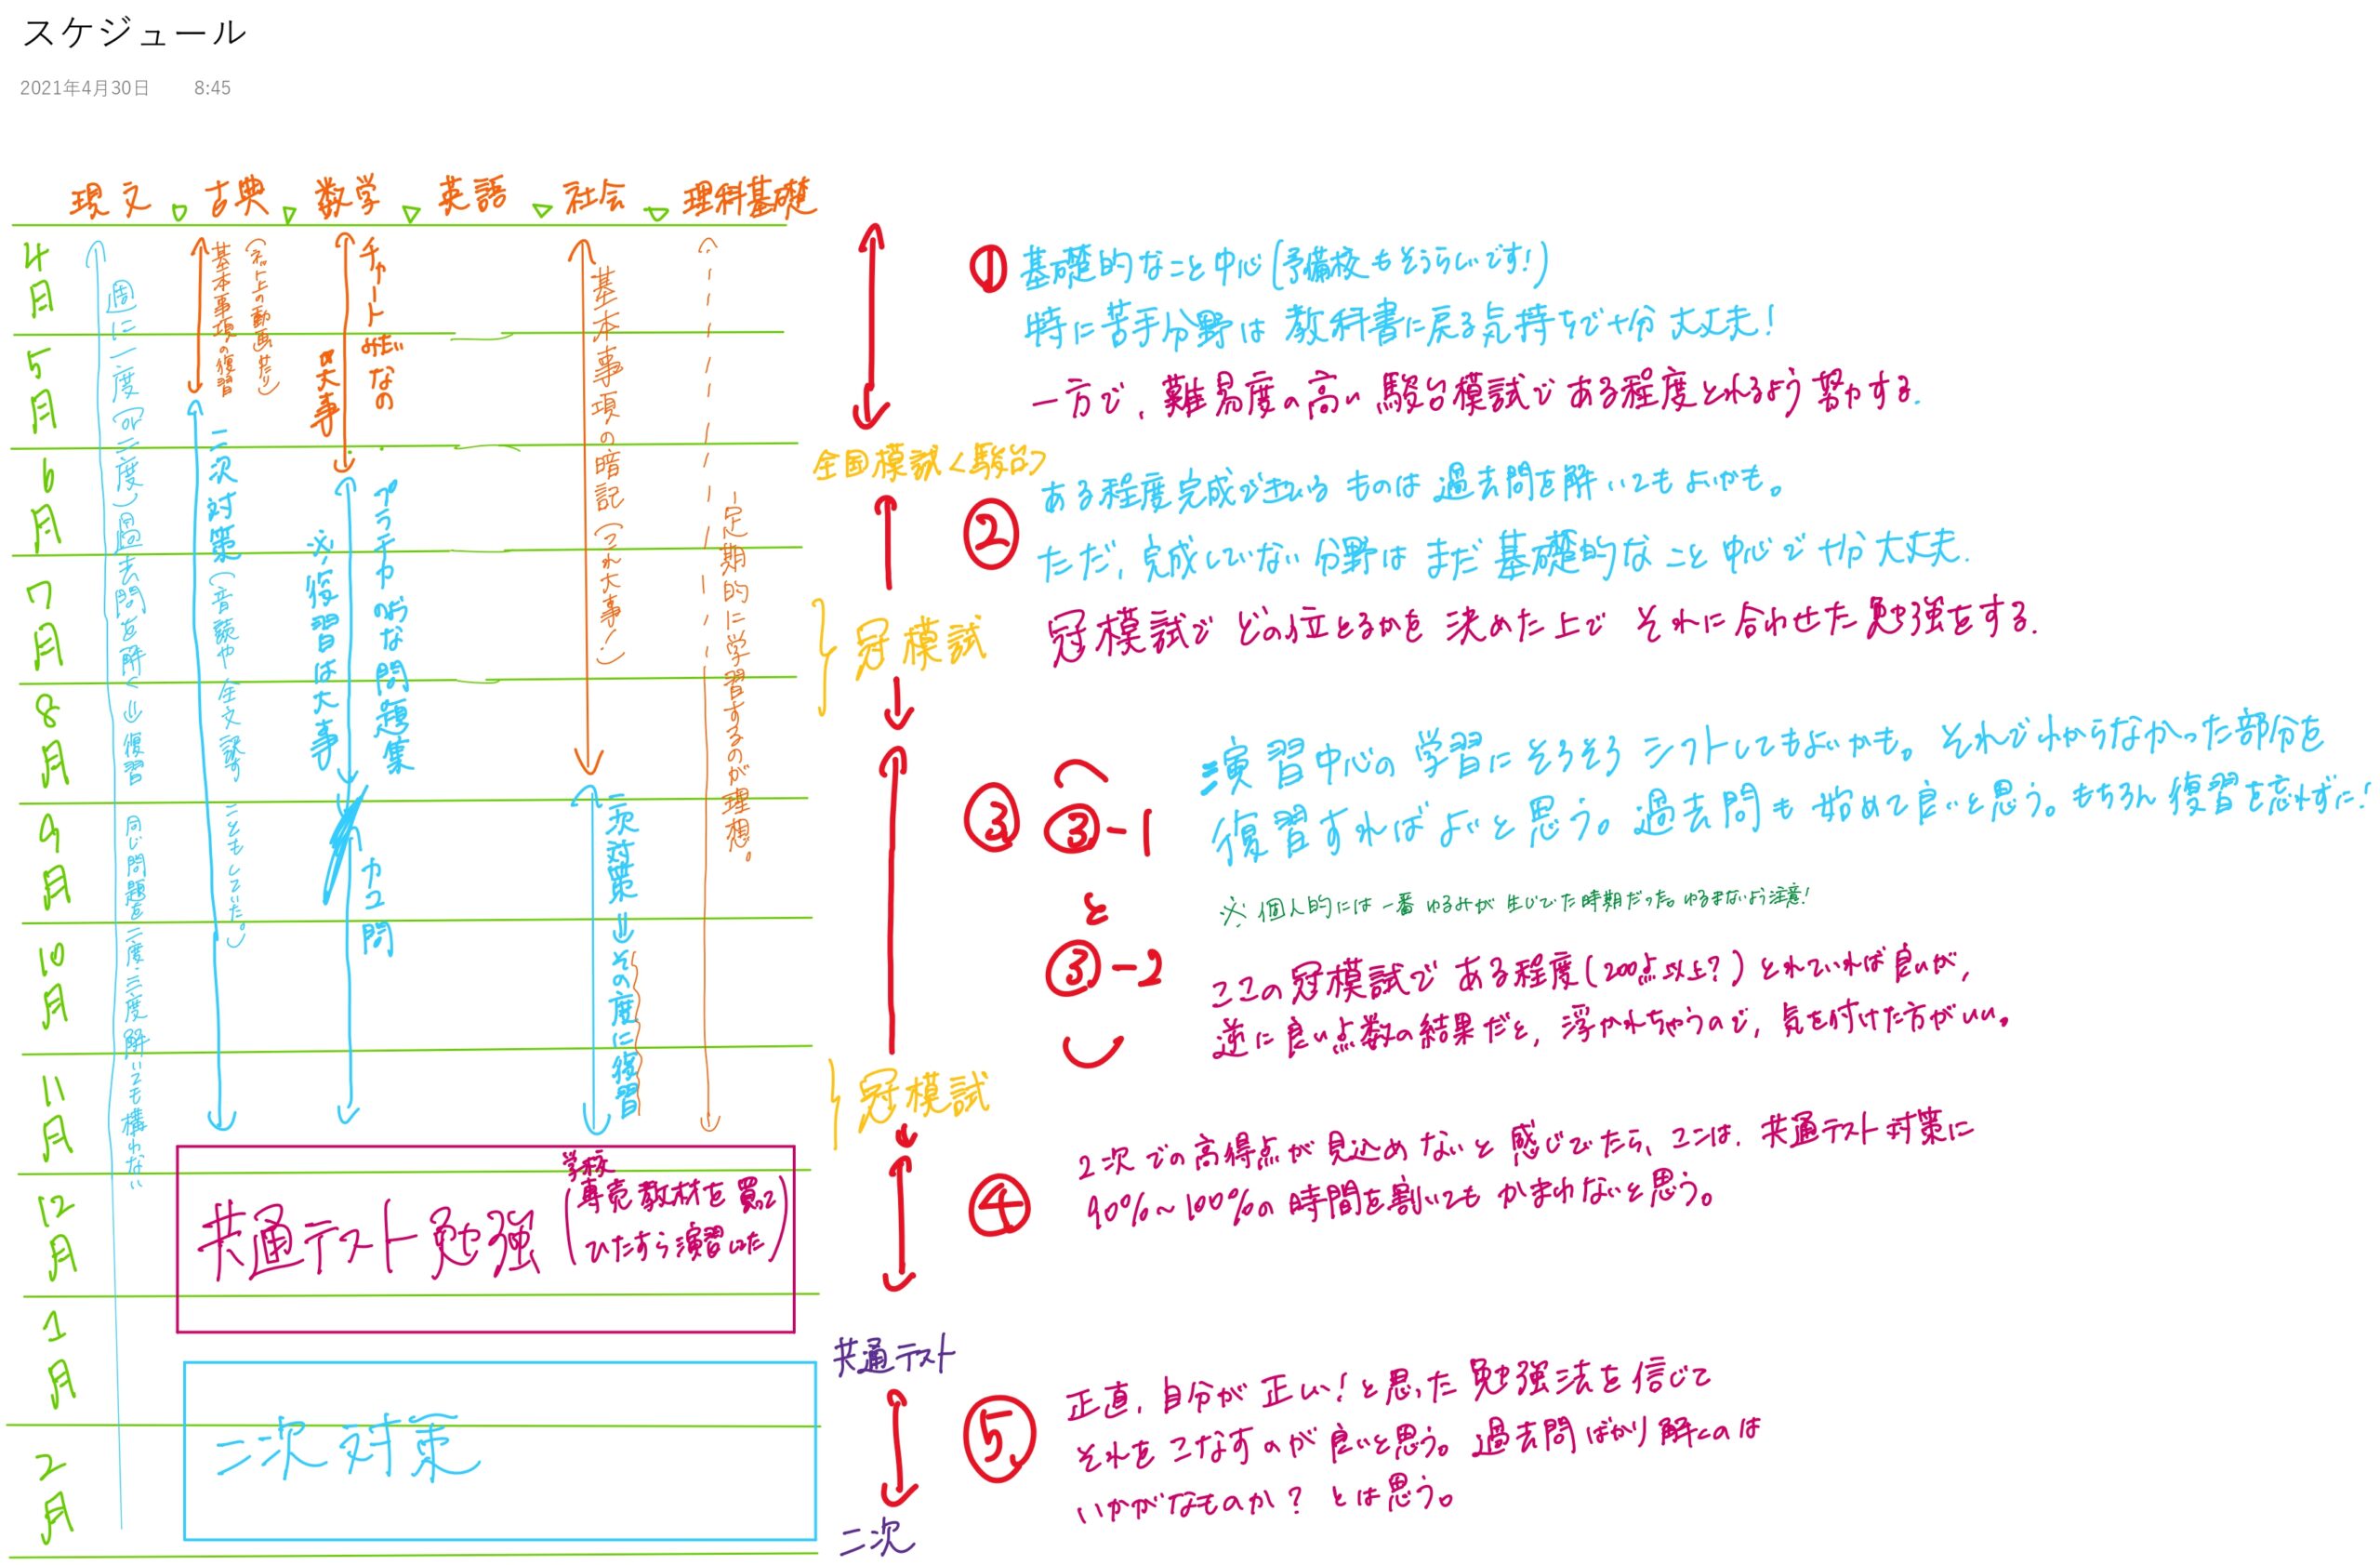 スケジュール
2021年4月30日 8:45
現文 古典 数学 英語 社会 理科基礎
4月
5月
6月
7月
8月
9月
10月
11月
12月
1月
2月
週に一度(or二度)過去問を解く⇒復習 同じ問題を二度・三度解いても構わない
基本事項の復習
(ネット上の動画みたり)
二次対策(音読や全文訳すこともしていた。)
チャートみたいなの
大事
プラチカのような問題集
※復習は大事
カコ問
基本事項の暗記(これ大事!)
二次対策⇒その度に復習
定期的に学習するのが理想。
共通テスト勉強
学校
(専売教材を買って
ひたすら演習した)
二次対策
全国模試<駿台>
冠模試
冠模試
共通テスト
二次
① 基礎的なこと中心(予備校もそうらしいです!)
特に苦手分野は教科書に戻る気持ちで十分大丈夫!
一方で、難易度の高い駿台模試である程度とれるよう努力する.
② ある程度完成できているものは過去問を解いてもよいかも。
ただ、完成していない分野はまだ基礎的なこと中心で十分大丈夫.
冠模試でどの位とるかを決めた上でそれに合わせた勉強をする.
③ ③-1 と ③-2
演習中心の学習にそろそろシフトしてもよいかも。それでわからなかった部分を
復習すればよいと思う。過去問も始めて良いと思う。もちろん復習を忘れずに!
※個人的には一番ゆるみが生じていた時期だった。ゆるまないよう注意!
ここの冠模試である程度(200点以上?)とれていれば良いが、
逆に良い点数の結果だと、浮かれちゃうので、気を付けた方がいい。
④ 2次での高得点が見込めないと感じてたら、ココは、共通テスト対策に
90%~100%の時間を割いてもかまわないと思う。
⑤ 正直、自分が正しい!と思った勉強法を信じて
それをこなすのが良いと思う。過去問ばかり解くのは
いかがなものか?とは思う。